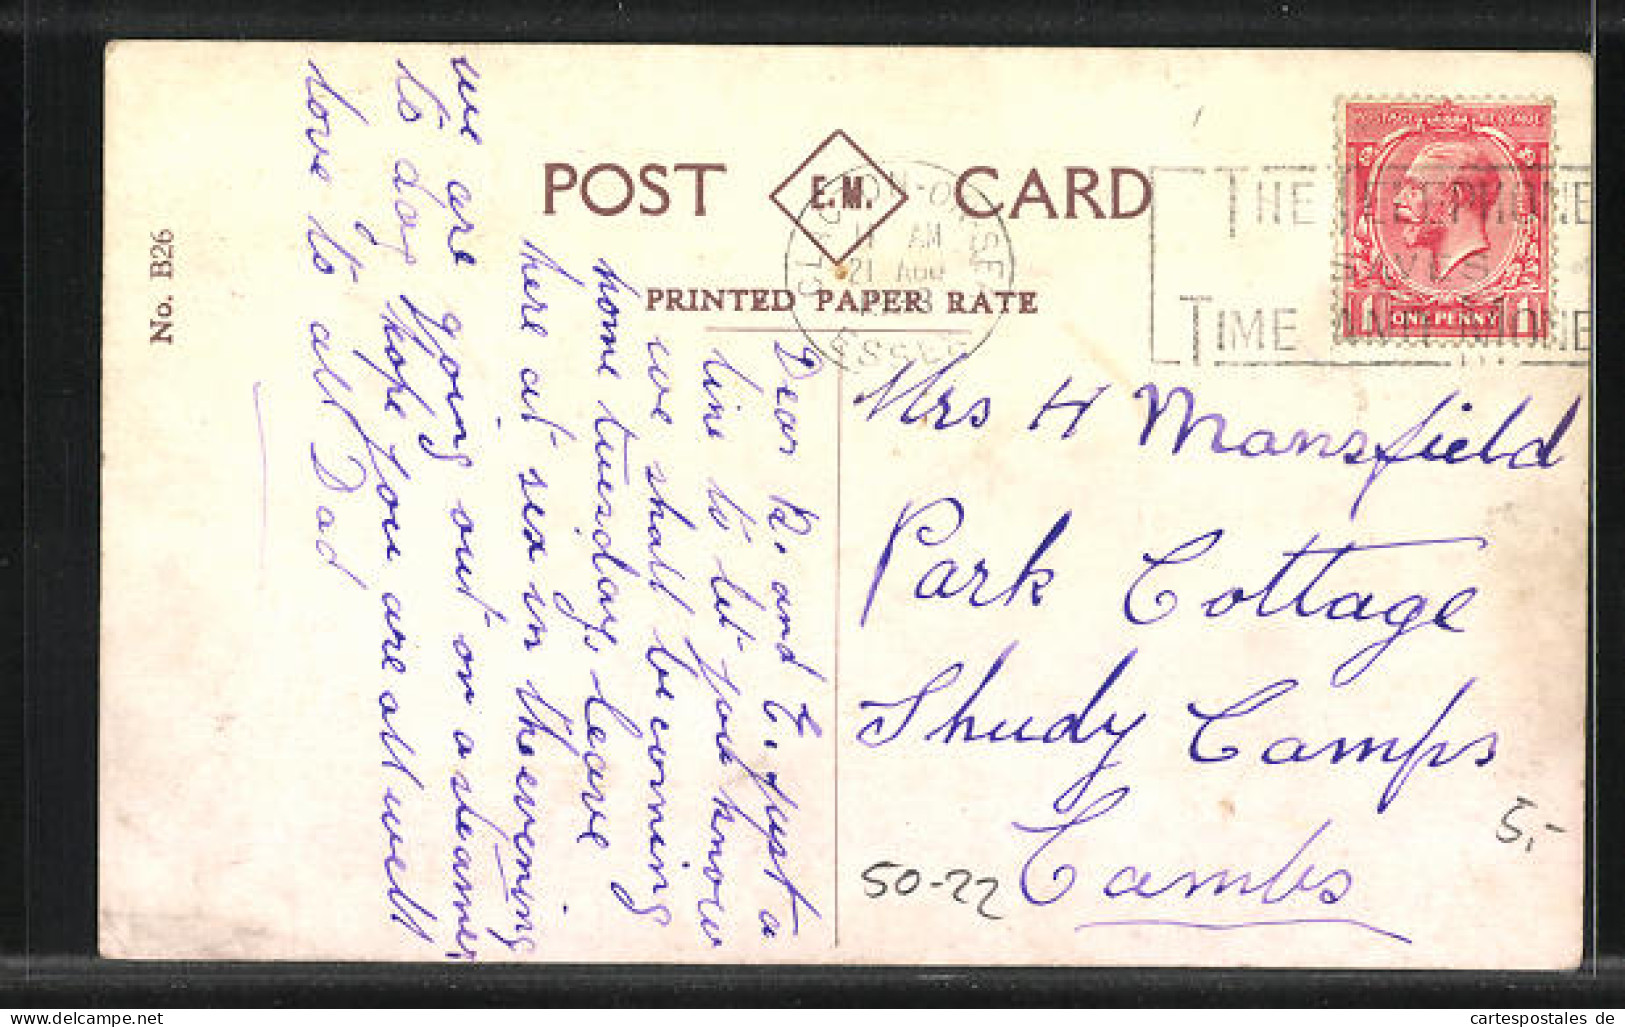 No. B26
POST E.M. CARD
PRINTED PAPER RATE
CLACTON-ON-SEA
11 AM
21 AUG
ESSEX
THE TELEPHONE
SAVES
TIME AND MONE
POSTAGE REVENUE
1 ONE PENNY 1
Dear R. and E. just a
line to let you know
we shall be coming
home tuesday, leave
here at six in the evening
we are going out on a steamer
to day hope you are all well
love to all Dad
Mrs H Mansfield
Park Cottage
Shudy Camps
Cambs
50-22
5,-
cartespostales de